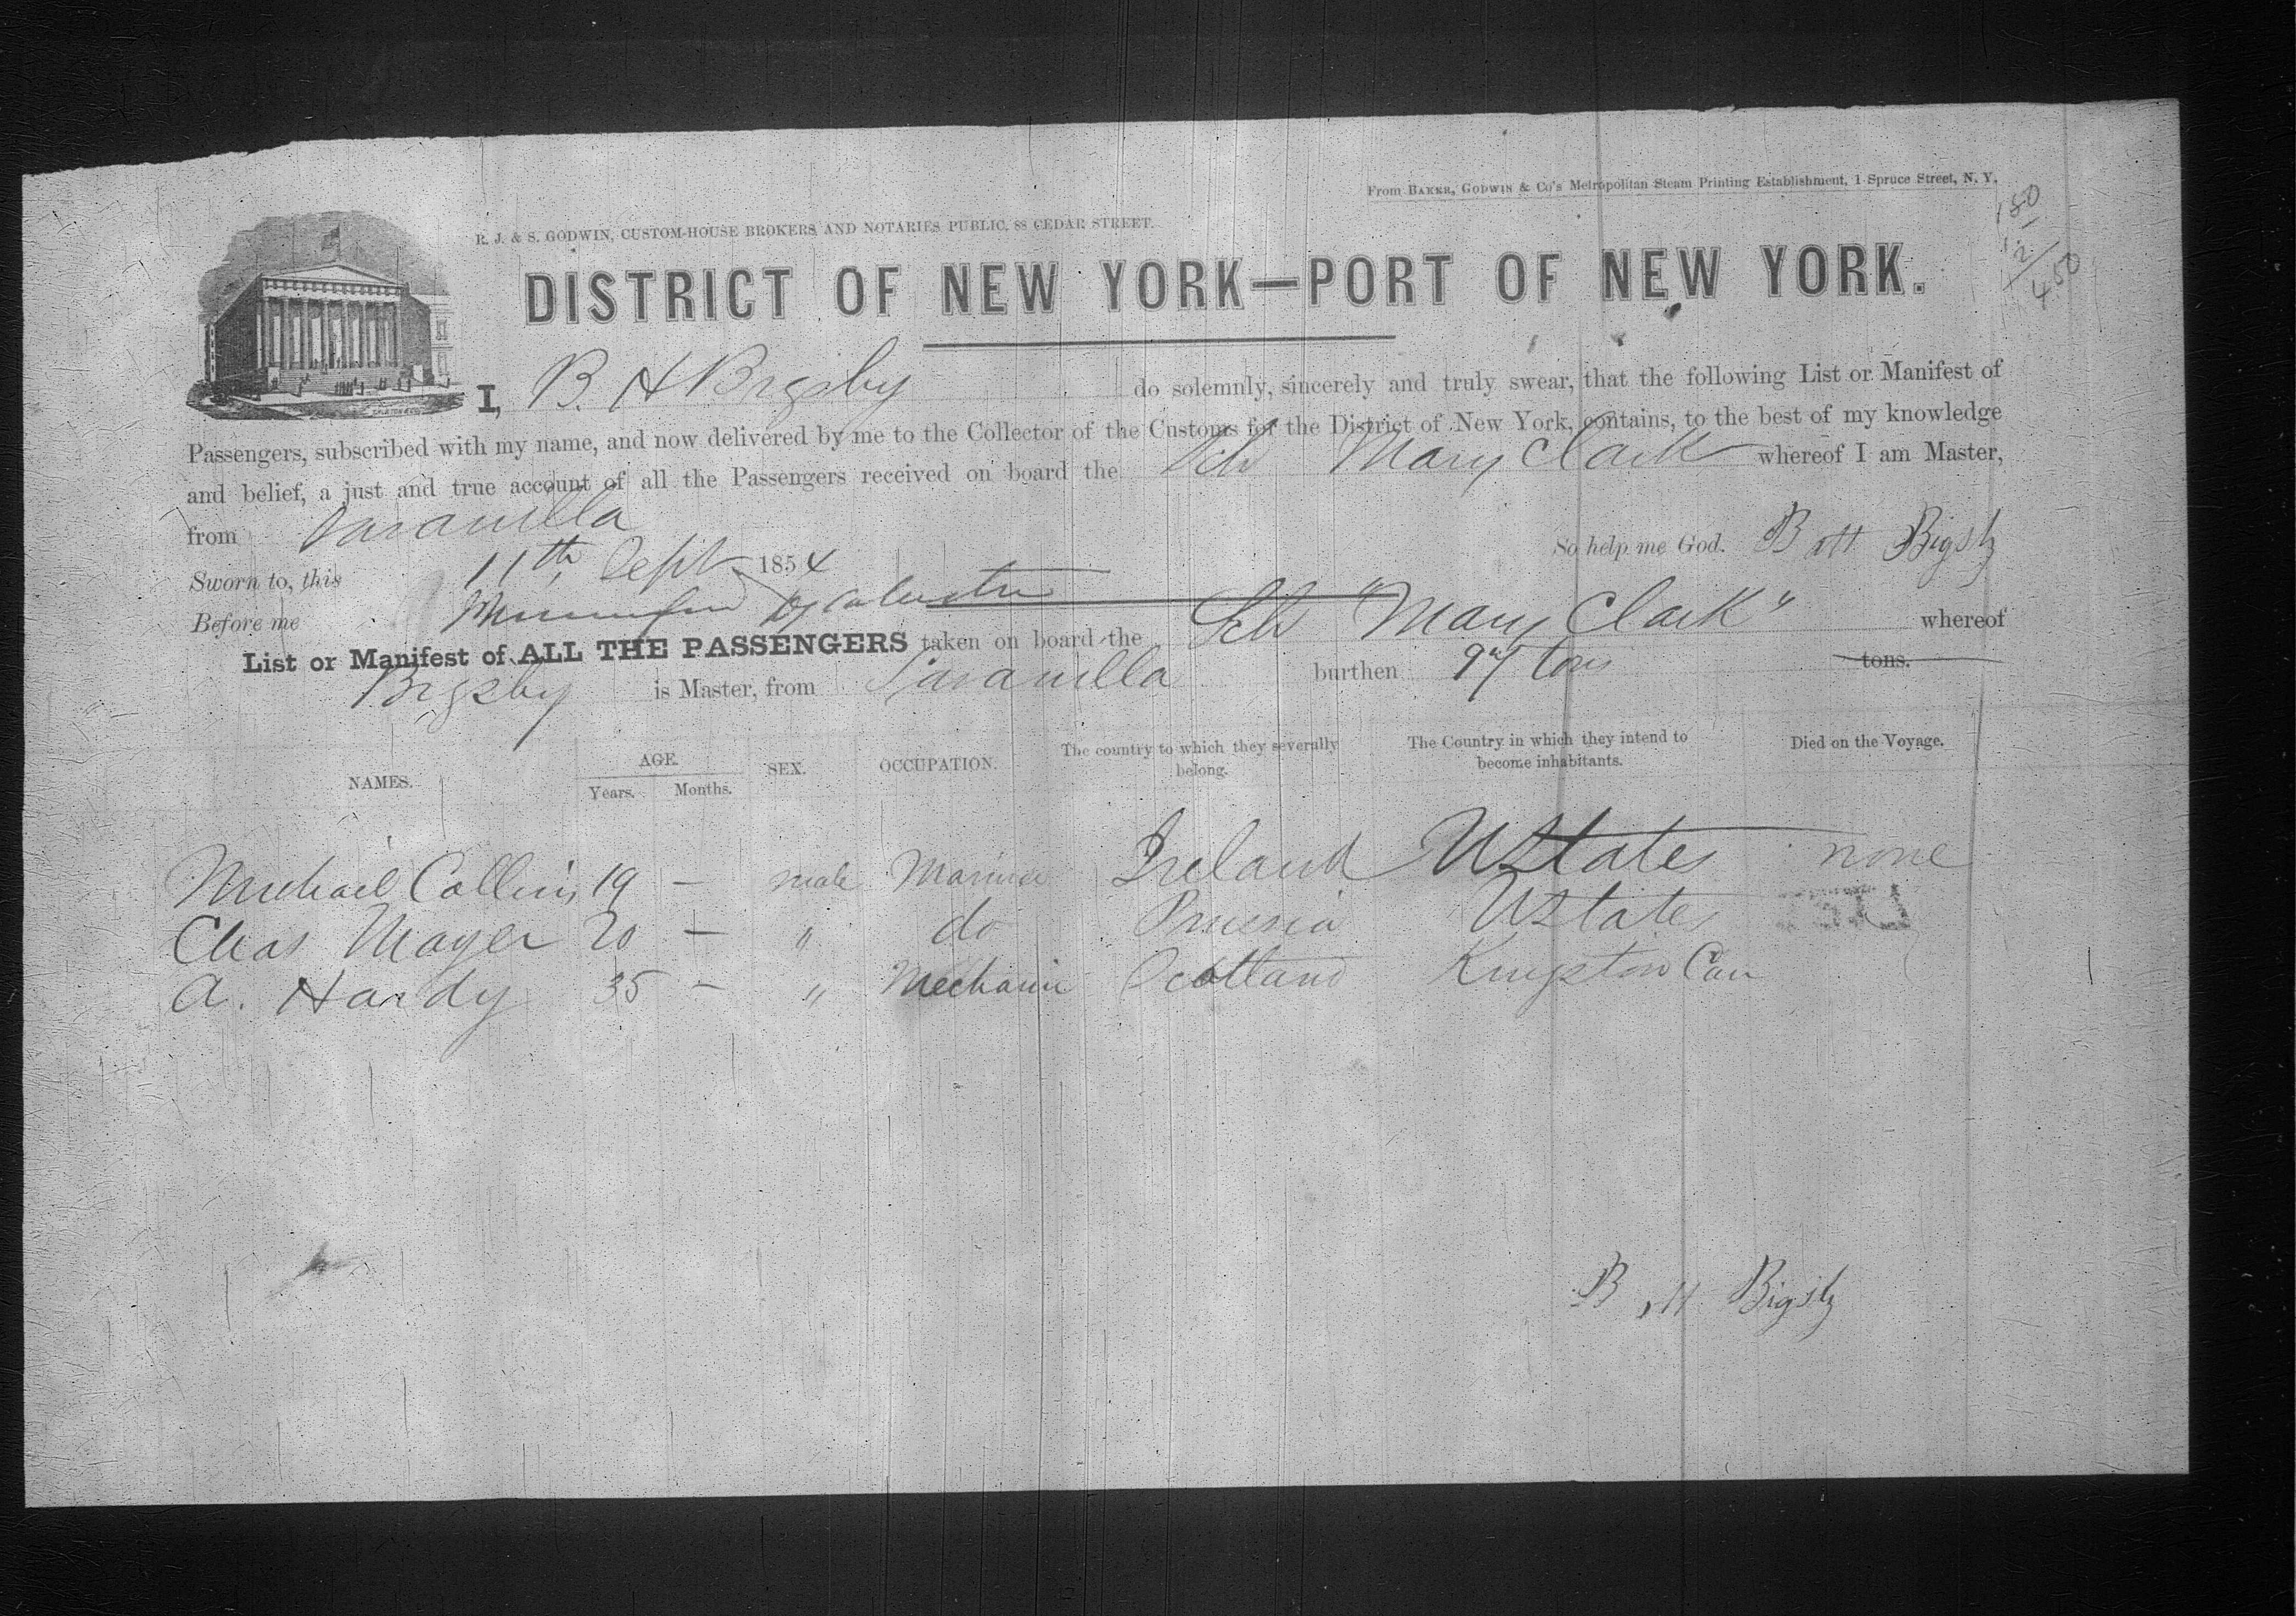 From BAKER, GODWIN & Co's Metropolitan Steam Printing Establishment, 1 Spruce Street, N. Y.
R. J. & S. GODWIN, CUSTOM-HOUSE BROKERS AND NOTARIES PUBLIC, 88 CEDAR STREET.
DISTRICT OF NEW YORK—PORT OF NEW YORK.
I, B. H Bigsby do solemnly, sincerely and truly swear, that the following List or Manifest of
Passengers, subscribed with my name, and now delivered by me to the Collector of the Customs for the District of New York, contains, to the best of my knowledge
and belief, a just and true account of all the Passengers received on board the Sch Mary Clark whereof I am Master,
from Savanilla So help me God. B H Bigsby
Sworn to, this 11th Sept 1854
Before me
List or Manifest of ALL THE PASSENGERS taken on board the Sch "Mary Clark" whereof
Bigsby is Master, from Savanilla burthen tons tons.
NAMES. AGE. Years. Months. SEX. OCCUPATION. The country to which they severally belong. The Country in which they intend to become inhabitants. Died on the Voyage.
Michael Collins 19 — male Mariner Ireland UStates none
Chas Mayer 20 — " do Prussia UStates
A. Hardy 35 — " Mechanic Scotland Kingston Can
B H Bigsby